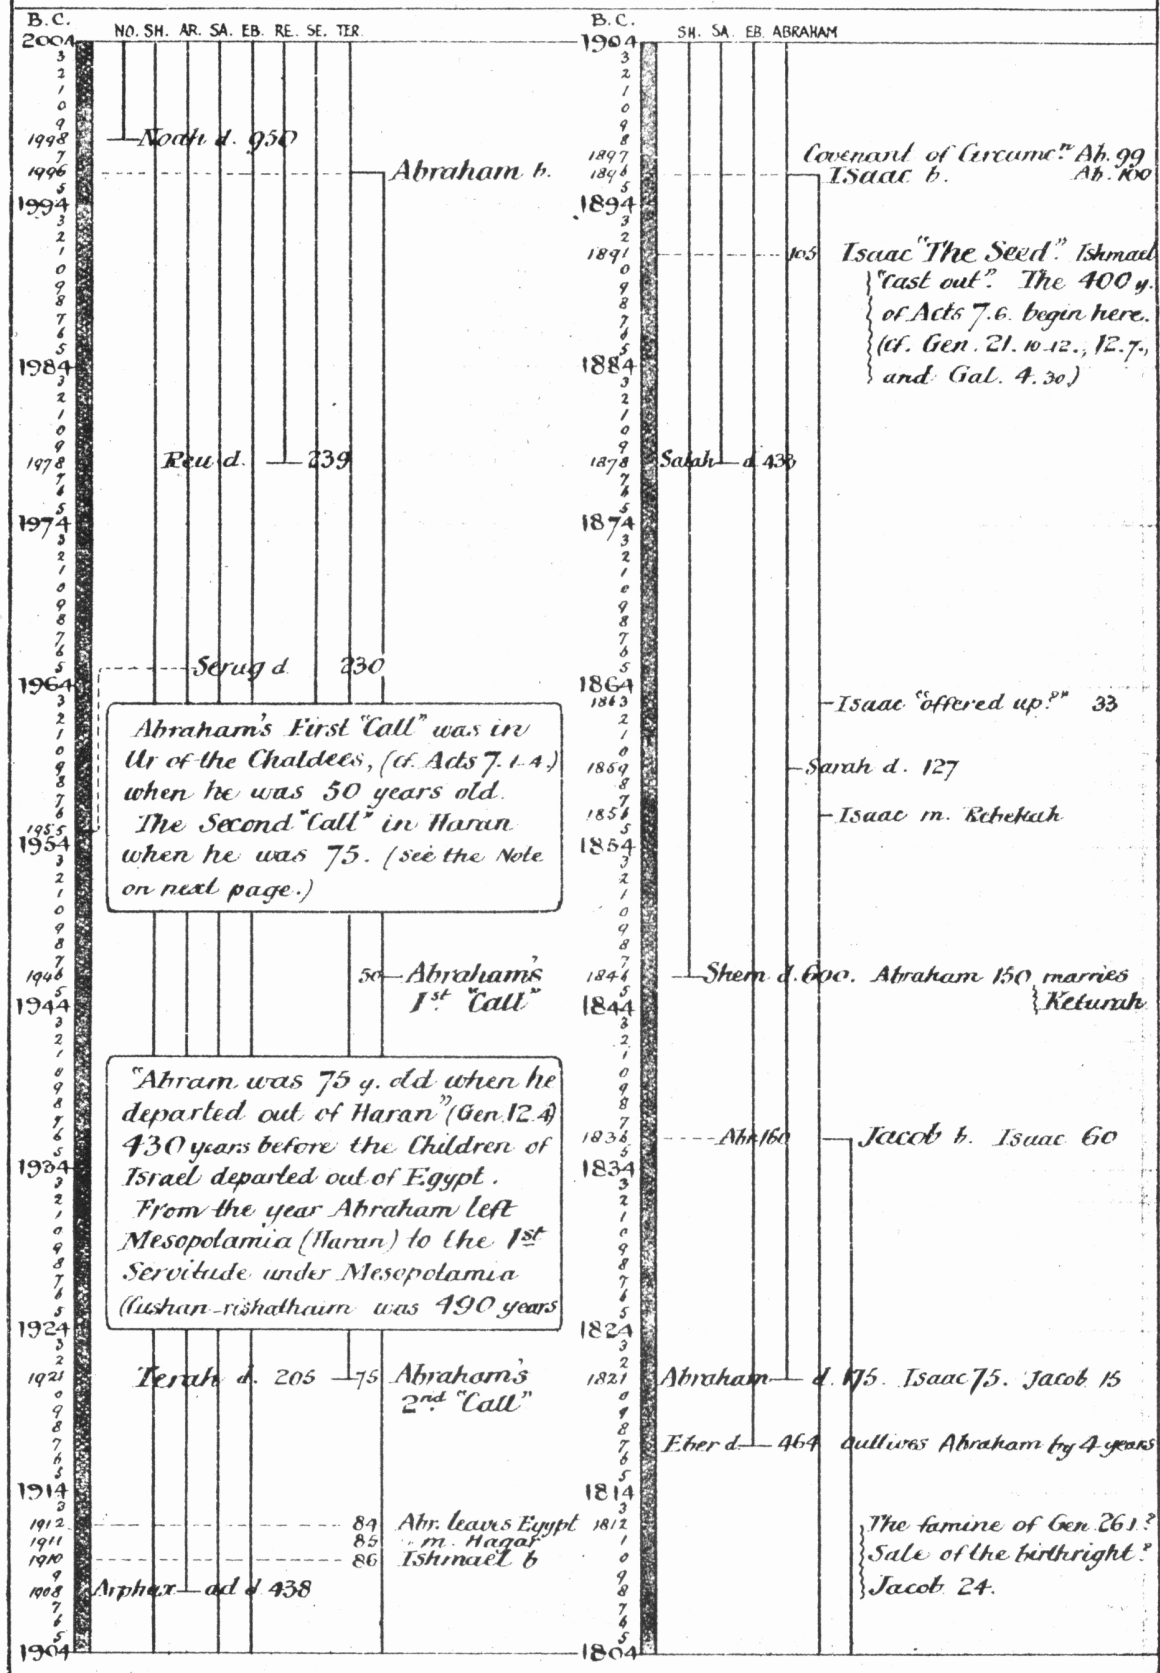 B.C.
NO. SH. AR. SA. EB. RE. SE. TER.
2004
3
2
1
0
9
1998 Noah d. 950
7
1996 Abraham b.
5
1994
3
2
1
0
9
8
7
6
5
1984
3
2
1
0
9
1978 Reu d. 239
7
6
5
1974
3
2
1
0
9
8
7
6
5 Serug d. 230
1964
3
2
1
0
9
8
7
6
1955
1954
3
2
1
0
9
8
7
Abraham's First "Call" was in
Ur of the Chaldees, (cf. Acts 7. 1-4.)
when he was 50 years old.
The Second "Call" in Haran
when he was 75. (see the Note
on next page.)
1946 50 Abraham's
1st "Call"
5
1944
3
2
1
0
9
8
7
6
5
1934
3
2
1
0
9
8
7
6
5
1924
3
2
"Abram was 75 y. old when he
departed out of Haran" (Gen. 12.4)
430 years before the Children of
Israel departed out of Egypt.
From the year Abraham left
Mesopotamia (Haran) to the 1st
Servitude under Mesopotamia
(Cushan-rishathaim was 490 years
1921 Terah d. 205 75 Abraham's
2nd "Call"
0
9
8
7
6
5
1914
3
1912 84 Abr. leaves Egypt
1911 85 " m. Hagar
1910 86 Ishmael b
9
1908 Arphaxad d 438
7
6
5
1904
B.C.
SH. SA. EB. ABRAHAM
1904
3
2
1
0
9
8
1897 Covenant of Circumcn. Ab. 99
1896 Isaac b. Ab. 100
5
1894
3
2
1891 105 Isaac "The Seed". Ishmael
"cast out". The 400 y.
of Acts 7.6. begin here.
(cf. Gen. 21. 10-12., 12.7.,
and Gal. 4.30)
0
9
8
7
6
5
1884
3
2
1
0
9
1878 Salah d. 433
7
6
5
1874
3
2
1
0
9
8
7
6
5
1864
1863 Isaac "offered up?" 33
2
1
0
1859 Sarah d. 127
8
7
1856 Isaac m. Rebekah
5
1854
3
2
1
0
9
8
7
1846 Shem d. 600. Abraham 150 marries
Keturah
5
1844
3
2
1
0
9
8
7
1836 Abr. 160 Jacob b. Isaac 60
5
1834
3
2
1
0
9
8
7
6
5
1824
3
2
1821 Abraham d. 175. Isaac 75. Jacob 15
0
9
8
7 Eber d 464 outlives Abraham by 4 years
6
5
1814
3
1812 The famine of Gen. 26.1?
Sale of the birthright?
Jacob 24.
1
0
9
8
7
6
5
1804